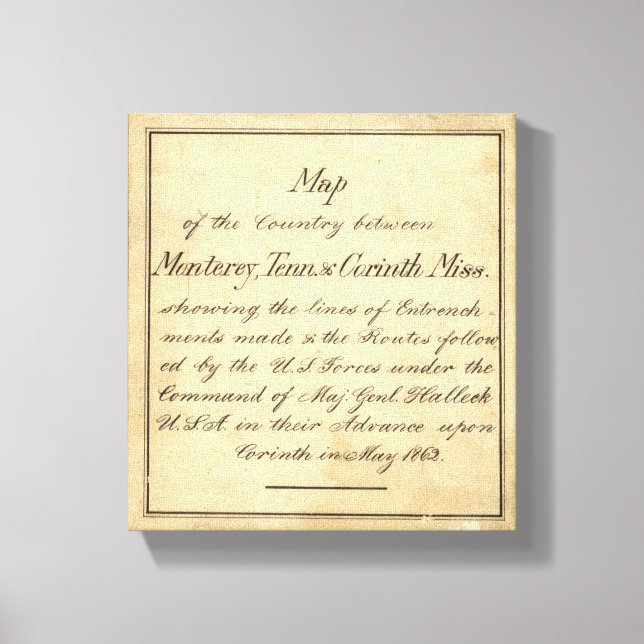 Map
of the Country between
Monterey, Tenn. & Corinth Miss.
showing the lines of Entrench-
ments made & the Routes follow
ed by the U.S. Forces under the
Command of Maj. Genl. Halleck
U.S.A. in their Advance upon
Corinth in May 1862.